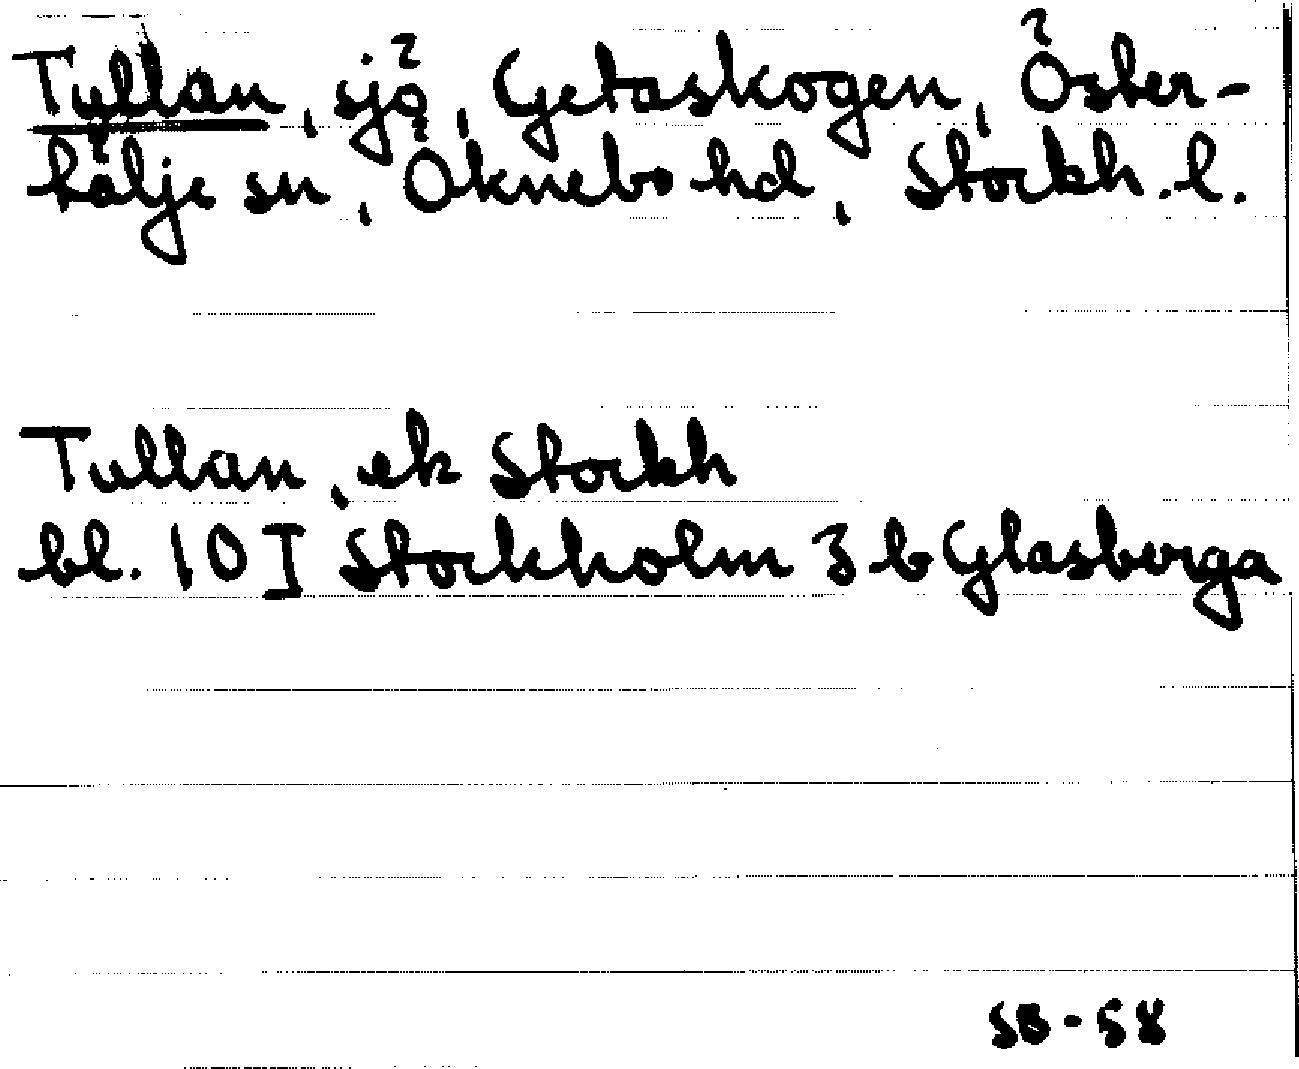 Tullan, sjö, Getaskogen, Öster-
tälje sn, Öknebo hd, Stockh. l.
Tullan, ek Stockh
bl. 10 I Stockholm 3 b Glasberga
SB - 58